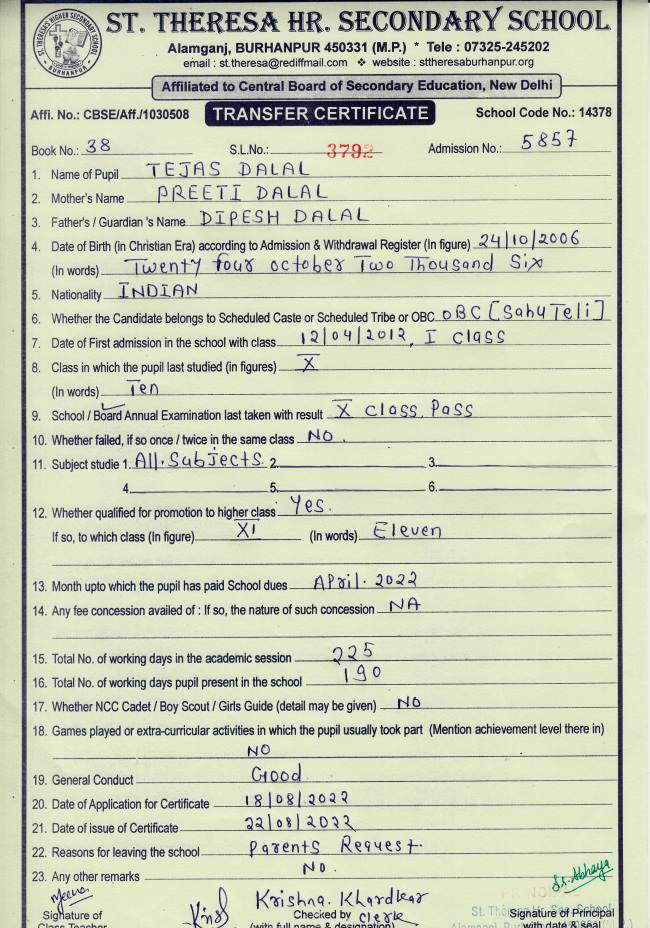 ST. THERESA HR. SECONDARY SCHOOL
Alamganj, BURHANPUR 450331 (M.P.) * Tele : 07325-245202
email : st.theresa@rediffmail.com ❖ website : sttheresaburhanpur.org
Affiliated to Central Board of Secondary Education, New Delhi
Affi. No.: CBSE/Aff./1030508 TRANSFER CERTIFICATE School Code No.: 14378
Book No.: 38 S.L.No.: 3792 Admission No.: 5857
1. Name of Pupil TEJAS DALAL
2. Mother's Name PREETI DALAL
3. Father's / Guardian 's Name DIPESH DALAL
4. Date of Birth (in Christian Era) according to Admission & Withdrawal Register (In figure) 24/10/2006
(In words) Twenty four october Two Thousand Six
5. Nationality INDIAN
6. Whether the Candidate belongs to Scheduled Caste or Scheduled Tribe or OBC OBC [Sahu Teli]
7. Date of First admission in the school with class 12/04/2012, I class
8. Class in which the pupil last studied (in figures) X
(In words) Ten
9. School / Board Annual Examination last taken with result X class, Pass
10. Whether failed, if so once / twice in the same class NO.
11. Subject studie 1. All. Subjects 2. 3.
4. 5. 6.
12. Whether qualified for promotion to higher class Yes.
If so, to which class (In figure) XI (In words) Eleven
13. Month upto which the pupil has paid School dues April. 2022
14. Any fee concession availed of : If so, the nature of such concession NA
15. Total No. of working days in the academic session 225
16. Total No. of working days pupil present in the school 190
17. Whether NCC Cadet / Boy Scout / Girls Guide (detail may be given) NO
18. Games played or extra-curricular activities in which the pupil usually took part (Mention achievement level there in)
NO
19. General Conduct Good
20. Date of Application for Certificate 18/08/2022
21. Date of issue of Certificate 22/08/2022
22. Reasons for leaving the school Parents Request.
23. Any other remarks NO.
Krishna. Khardkar
Signature of Checked by clerk Signature of Principal
Class Teacher (with full name & designation) with date & seal